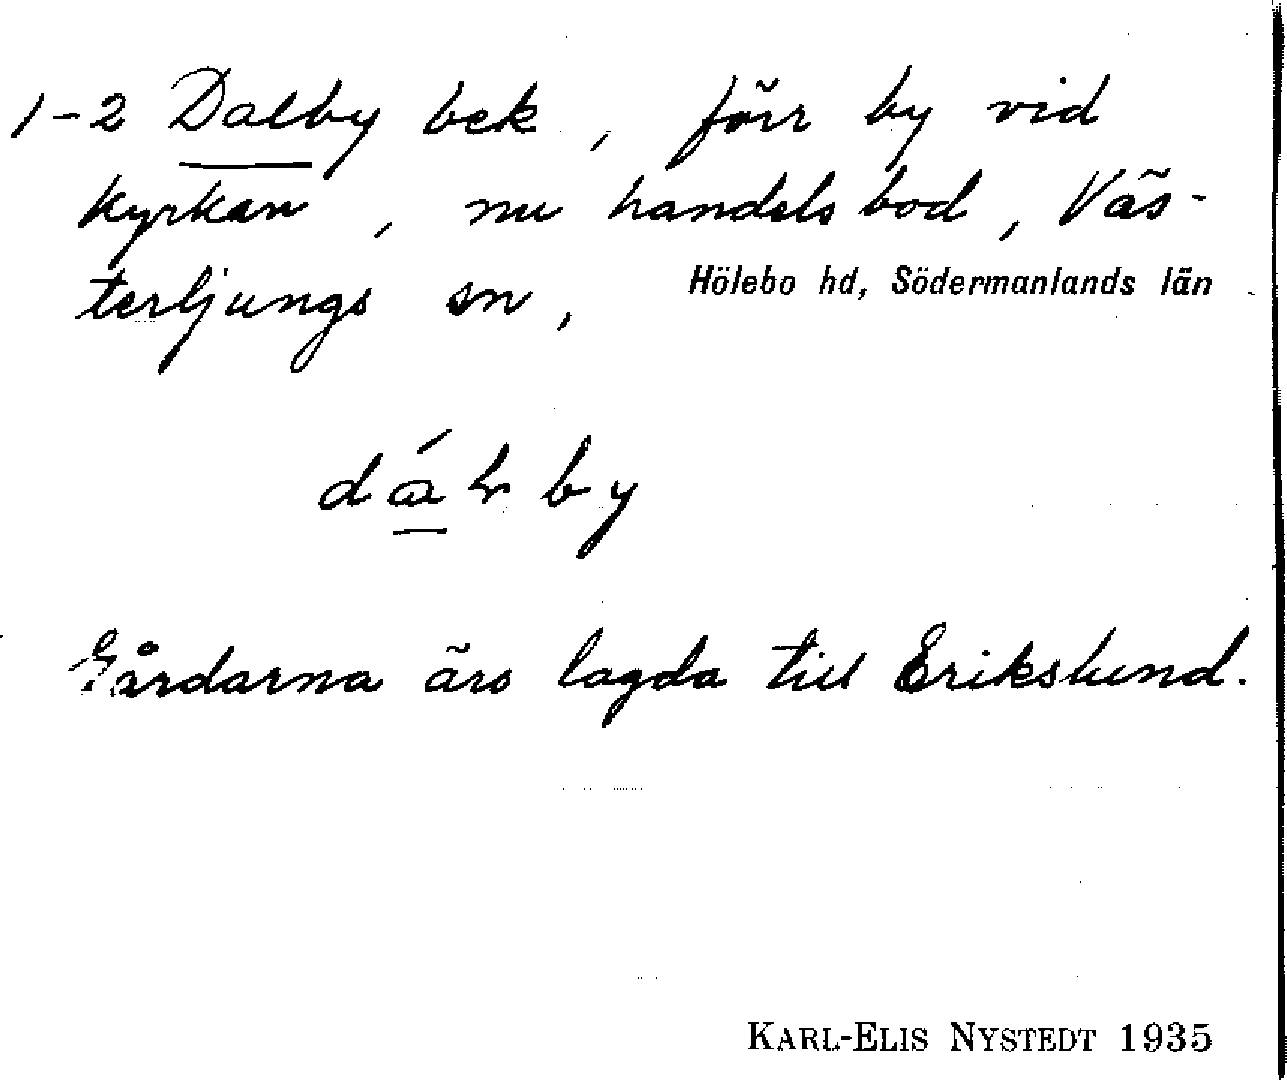 1-2 Dalby bek, förr by vid
kyrkan, nu handelsbod, Väs-
terljungs sn, Hölebo hd, Södermanlands län
dálby
Gårdarna äro lagda till Erikslund.
KARL-ELIS NYSTEDT 1935